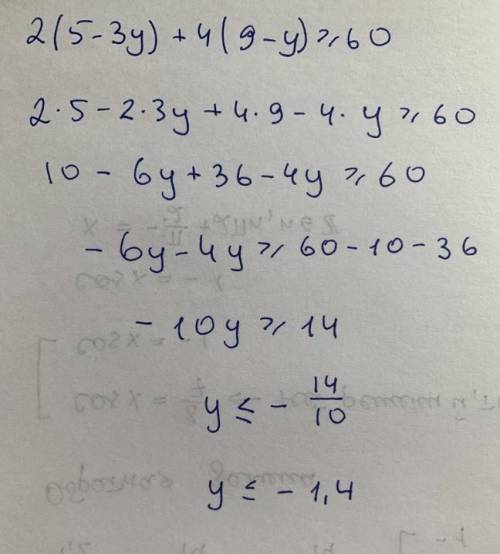 2(5-3y) + 4(9-y) ⩾ 60
2·5 - 2·3y + 4·9 - 4·y ⩾ 60
10 - 6y + 36 - 4y ⩾ 60
- 6y - 4y ⩾ 60 - 10 - 36
- 10y ⩾ 14
y ≤ - 14/10
y ≤ - 1,4